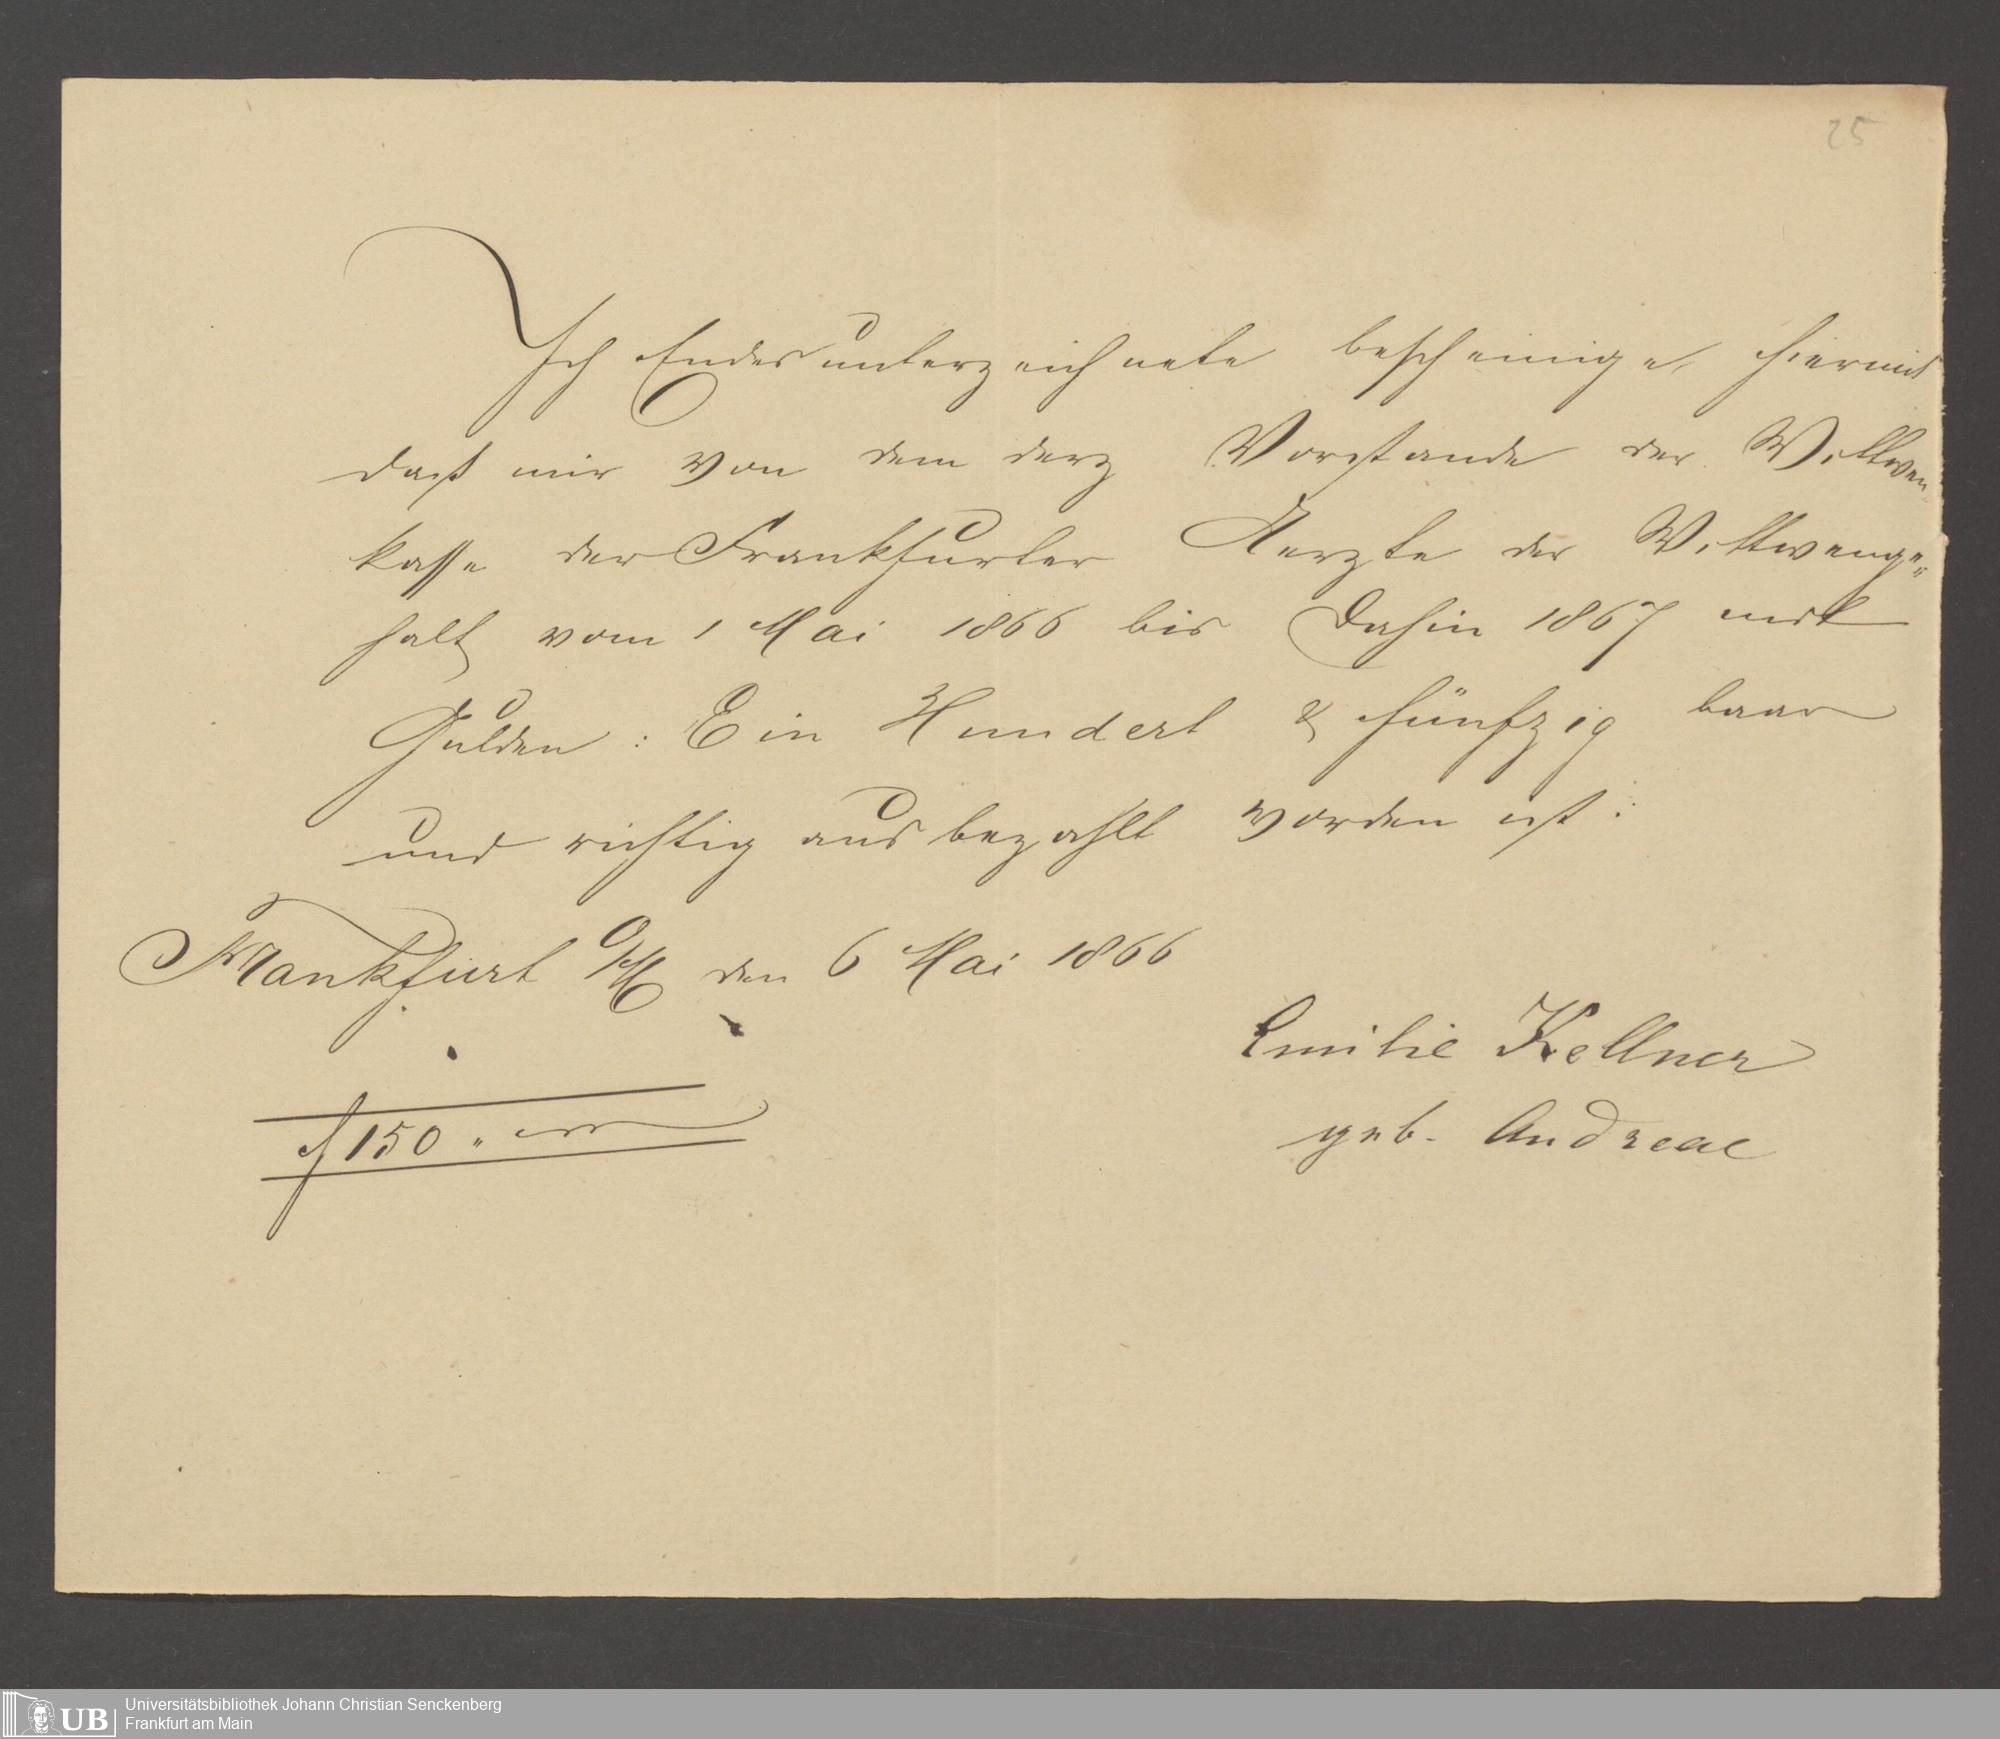 25
Ich Endesunterzeichnete bescheinige hiermit
daß mir von dem derz Vorstande der Wittwen
kasse der Frankfurter Aerzte der Wittwenge=
halt vom 1 Mai 1866 bis dahin 1867 mit
Gulden: Ein Hundert & fünfzig baar
und richtig ausbezahlt worden ist:
Frankfurt a/M den 6 Mai 1866
Emilie Kellner
geb. Andreae
f 150 „
UB
Universitätsbibliothek Johann Christian Senckenberg
Frankfurt am Main